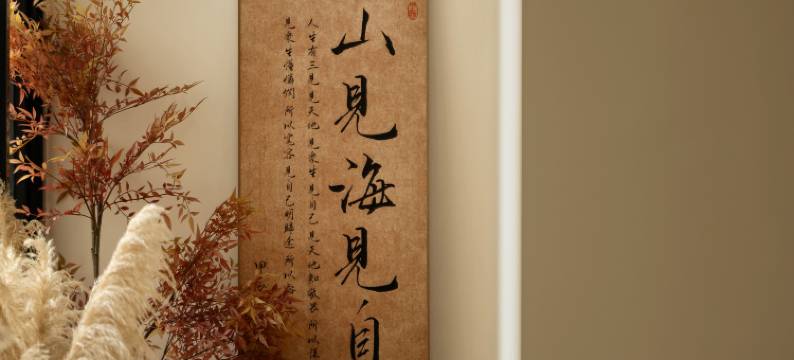 山見海見自
人生有三見見天地見衆生見自己見天地知敬畏所以謙
見衆生懂憐憫所以寬容見自己明歸途所以